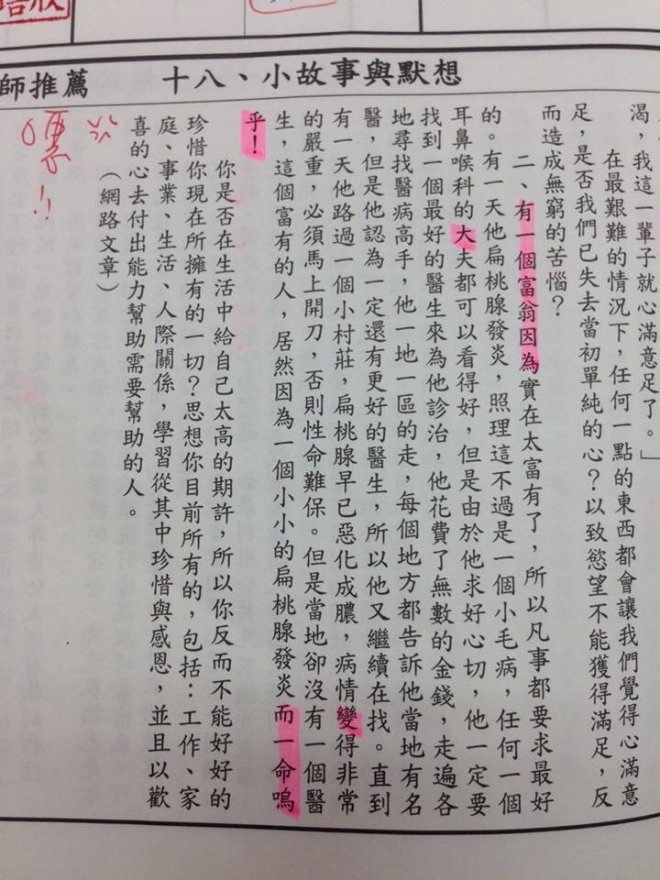 師推薦　十八、小故事與默想
渴，我這一輩子就心滿意足了。」
在最艱難的情況下，任何一點的東西都會讓我們覺得心滿意
足，是否我們已失去當初單純的心？以致慾望不能獲得滿足，反
而造成無窮的苦惱？
二、有一個富翁因為實在太富有了，所以凡事都要求最好
的。有一天他扁桃腺發炎，照理這不過是一個小毛病，任何一個
耳鼻喉科的大夫都可以看得好，但是由於他求好心切，他一定要
找到一個最好的醫生來為他診治，他花費了無數的金錢，走遍各
地尋找醫病高手，他一地一區的走，每個地方都告訴他當地有名
醫，但是他認為一定還有更好的醫生，所以他又繼續在找。直到
有一天他路過一個小村莊，扁桃腺早已惡化成膿，病情變得非常
的嚴重，必須馬上開刀，否則性命難保。但是當地卻沒有一個醫
生，這個富有的人，居然因為一個小小的扁桃腺發炎而一命嗚
乎！
你是否在生活中給自己太高的期許，所以你反而不能好好的
珍惜你現在所擁有的一切？思想你目前所有的，包括：工作、家
庭、事業、生活、人際關係，學習從其中珍惜與感恩，並且以歡
喜的心去付出能力幫助需要幫助的人。
（網路文章）